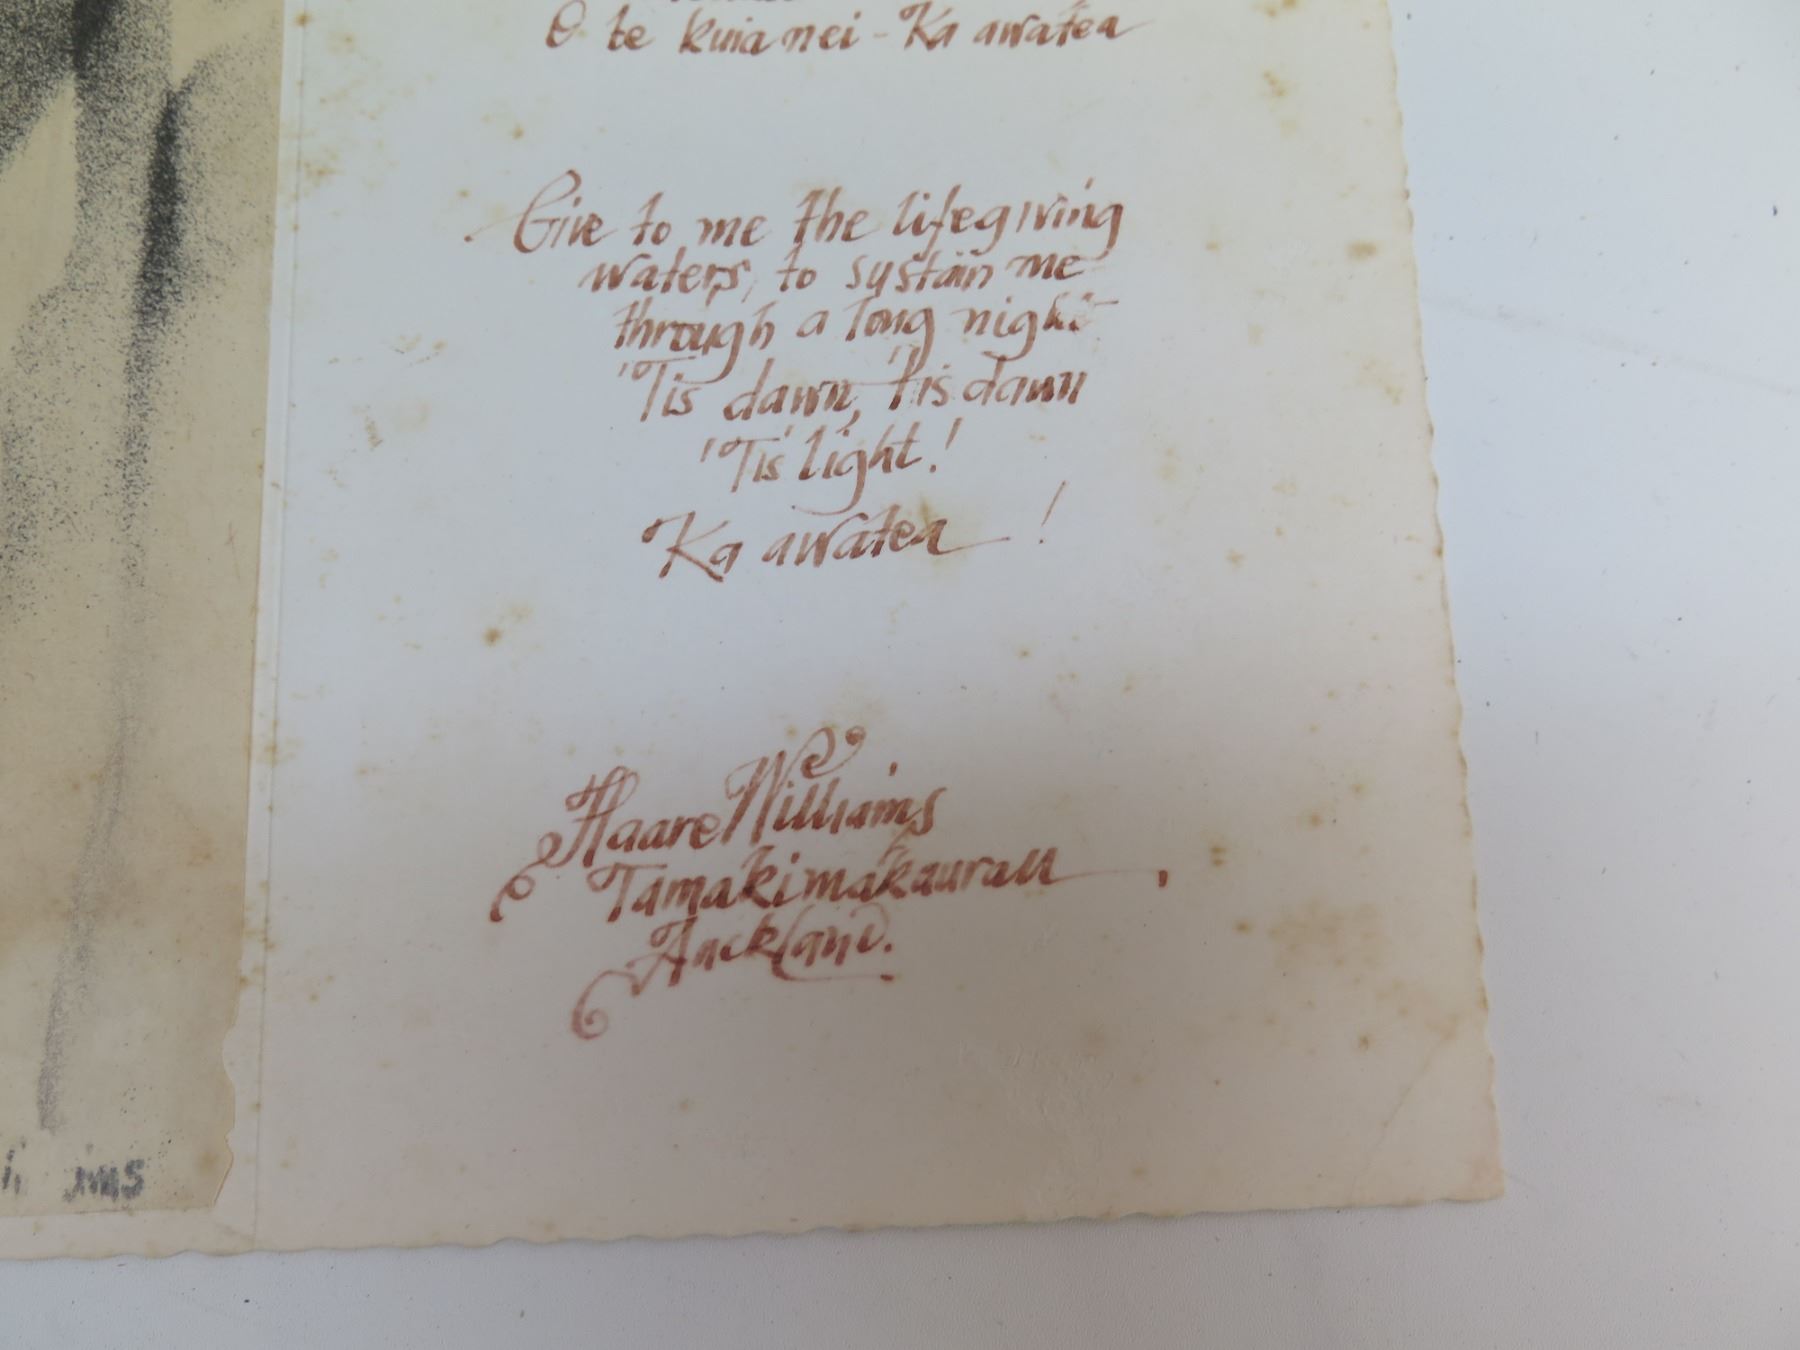 O te kuia nei - Ka awatea
Give to me the lifegiving
waters, to systain me
through a long night
'Tis dawn, 'tis dawn
'Tis light!
Ka awatea !
Haare Williams
Tamakimakaurau,
Auckland.